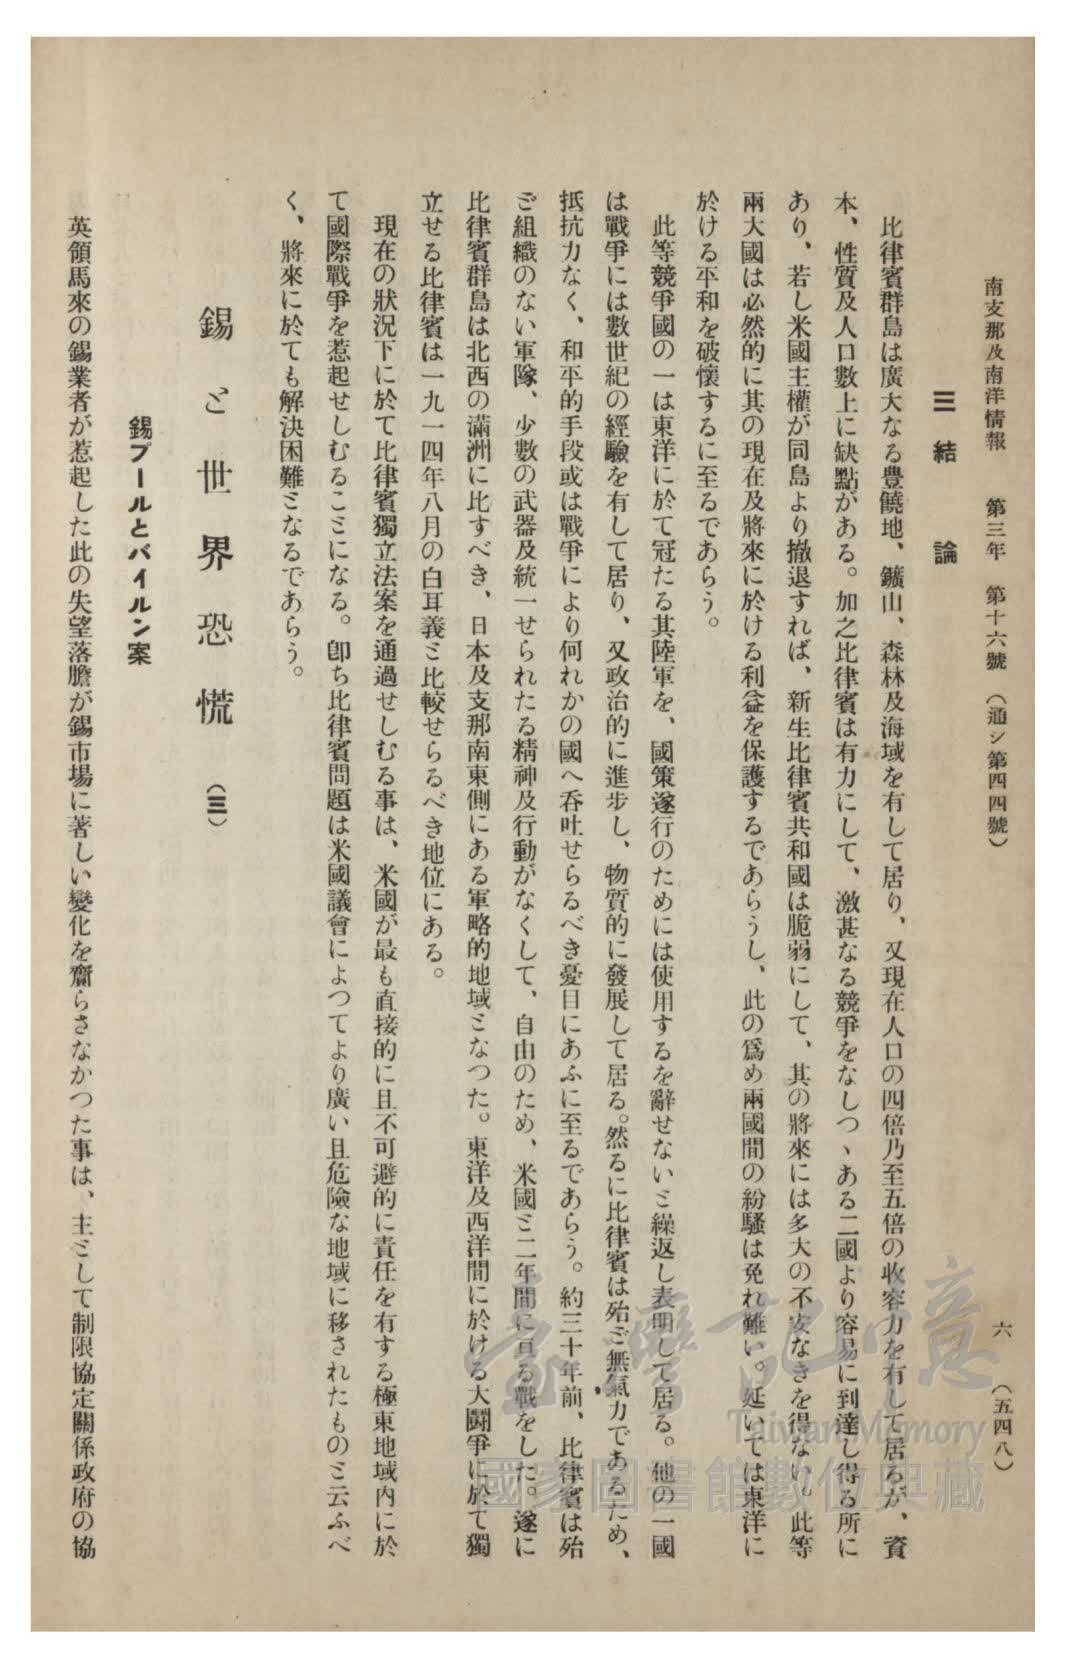 南支那及南洋情報　第三年　第十六號　（通シ第四四號）
六　（五四八）
三　結論
比律賓群島は廣大なる豊饒地、鑛山、森林及海域を有して居り、又現在人口の四倍乃至五倍の收容力を有して居るが、資
本、性質及人口數上に缺點がある。加之比律賓は有力にして、激甚なる競爭をなしつゝある二國より容易に到達し得る所に
あり、若し米國主權が同島より撤退すれば、新生比律賓共和國は脆弱にして、其の將來には多大の不安なきを得ない。此等
兩大國は必然的に其の現在及將來に於ける利益を保護するであらうし、此の爲め兩國間の紛騷は免れ難い。延いては東洋に
於ける平和を破懷するに至るであらう。
此等競爭國の一は東洋に於て冠たる其陸軍を、國策遂行のためには使用するを辭せないと繰返し表明して居る。他の一國
は戰爭には數世紀の經驗を有して居り、又政治的に進步し、物質的に發展して居る。然るに比律賓は殆ど無氣力であるため、
抵抗力なく、和平的手段或は戰爭により何れかの國へ呑吐せらるべき憂目にあふに至るであらう。約三十年前、比律賓は殆
ど組織のない軍隊、少數の武器及統一せられたる精神及行動がなくして、自由のため、米國と二年間に亘る戰をした。遂に
比律賓群島は北西の滿洲に比すべき、日本及支那南東側にある軍略的地域となつた。東洋及西洋間に於ける大鬪爭に於て獨
立せる比律賓は一九一四年八月の白耳義と比較せらるべき地位にある。
現在の狀況下に於て比律賓獨立法案を通過せしむる事は、米國が最も直接的に且不可避的に責任を有する極東地域內に於
て國際戰爭を惹起せしむることになる。卽ち比律賓問題は米國議會によつてより廣い且危險な地域に移されたものと云ふべ
く、將來に於ても解決困難となるであらう。
錫と世界恐慌（三）
錫プールとバイルン案
英領馬來の錫業者が惹起した此の失望落膽が錫市場に著しい變化を齎らさなかつた事は、主として制限協定關係政府の協
臺灣記憶
Taiwan Memory
國家圖書館數位典藏